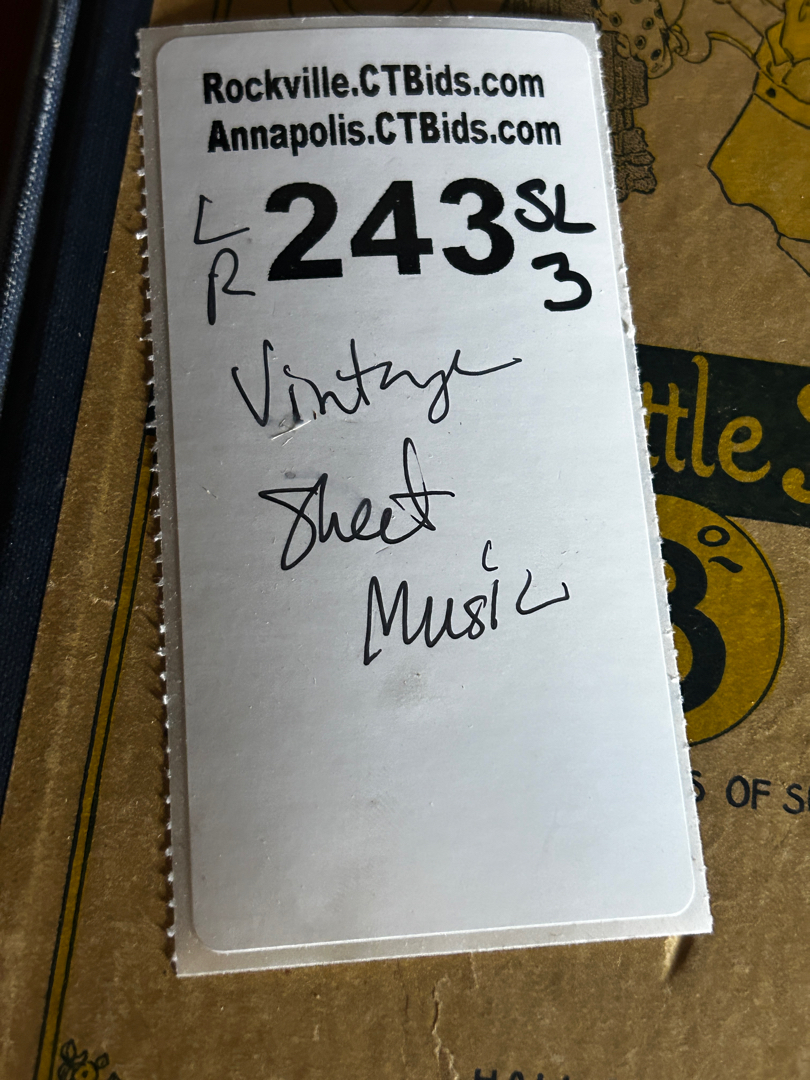 Rockville.CTBids.com
Annapolis.CTBids.com
L 243 SL
R 3
Vintage
Sheet
Music
ttle
8º
OF